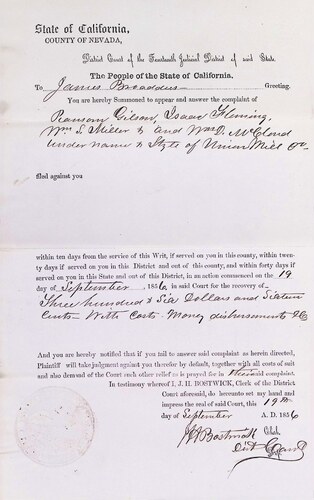 State of California,
COUNTY OF NEVADA,
District Court of the Fourteenth Judicial District of said State.
The People of the State of California.
To James Broaddus Greeting.
You are hereby Summoned to appear and answer the complaint of
Ransom Gilson, Isaac Fleming,
Wm S. Miller & and Wm D. McCloud
under name & Style of Union Mill Co
filed against you
within ten days from the service of this Writ, if served on you in this county, within twen-
ty days if served on you in this District and out of this county, and within forty days if
served on you in this State and out of this District, in an action commenced on the 19
day of September, 1856 in said Court for the recovery of
Three hundred & Six Dollars and Sixteen
Cents With Costs Money disbursements &c
And you are hereby notified that if you fail to answer said complaint as herein directed,
Plaintiff will take judgment against you therefor by default, together with all costs of suit
and also demand of the Court such other relief as is prayed for in their said complaint.
In testimony whereof I, J. H. BOSTWICK, Clerk of the District
Court aforesaid, do hereunto set my hand and
impress the seal of said Court, this 19th
day of September A. D. 1856
J H Bostwick Clerk.
Dist Court